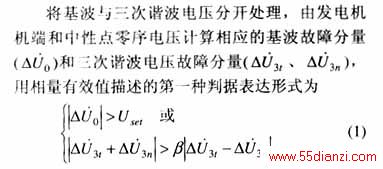 将基波与三次谐波电压分开处理，由发电机
机端和中性点零序电压计算相应的基波故障分量
(ΔU̇₀)和三次谐波电压故障分量(ΔU̇₃ₜ、ΔU̇₃ₙ)，
用相量有效值描述的第一种判据表达形式为
|ΔU̇₀|>U_set 或
|ΔU̇₃ₜ+ΔU̇₃ₙ|>β|ΔU̇₃ₜ-ΔU̇₃ (1)
www.55dianzi.com